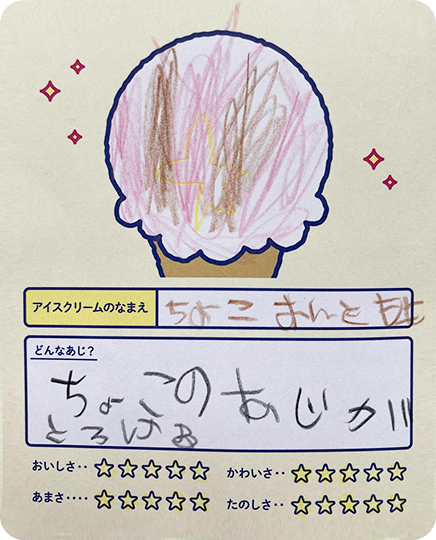 アイスクリームのなまえ
ちょこ みんと
どんなあじ?
ちょこの あじが
とろける
おいしさ‥ ☆☆☆☆☆
かわいさ‥ ☆☆☆☆☆
あまさ‥‥ ☆☆☆☆☆
たのしさ‥ ☆☆☆☆☆